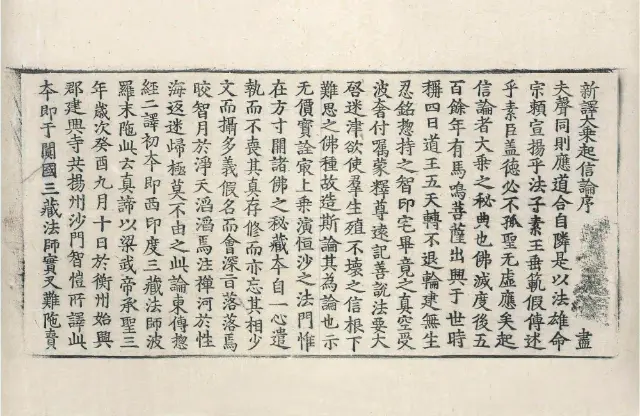 新譯大乗起信論序　盡
夫聲同則應道合自隣是以法雄命
宗賴宣揚乎法子素王垂範假傳述
乎素臣盖德必不孤聖无虛應矣起
信論者大乗之秘典也佛滅度後五
百餘年有馬鳴菩薩出興于世時
稱四日道王五天轉不退輪建無生
忍銘惣持之智印宅畢竟之真空受
波奢付囑蒙釋尊遠記善說法要大
啓迷津欲使羣生殖不壞之信根下
難思之佛種故造斯論其為論也示
无價寶詮冣上乗演恒沙之法門惟
在方寸開諸佛之秘藏夲自一心遣
執而不喪其真存修而亦忘其相少
文而攝多義假名而會深㫖落落焉
皎智月於淨天滔滔焉注禪河於性
海返迷歸極莫不由之此論東傳惣
經二譯初夲即西印度三藏法師波
羅末陁此云真諦以梁武帝承聖三
年歲次癸酉九月十日於衡州始興
郡建興寺共揚州沙門智愷所譯此
夲即于闐國三藏法師實叉難陁賷